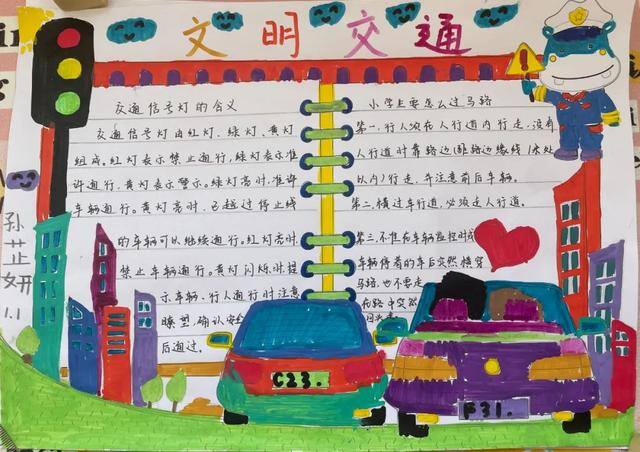 文明交通
交通信号灯的含义
交通信号灯由红灯、绿灯、黄灯
组成。红灯表示禁止通行,绿灯表示准
许通行,黄灯表示警示。绿灯亮时,准许
车辆通行。黄灯亮时,已越过停止线
的车辆可以继续通行。红灯亮时,
禁止车辆通行。黄灯闪烁时提
示车辆、行人通行时注意
瞭望,确认安全
后通过。
小学生要怎么过马路
第一,行人须在人行道内行走,没有
人行道时靠路边(距路边缘线1米处
以内)行走,并注意前后车辆。
第二,横过车行道,必须走人行道。
第三,不准在车辆临时或
车辆停着的车后突然横穿
马路,也不要走
在路中突然
孙芷妍
1.1
C23.
F31.